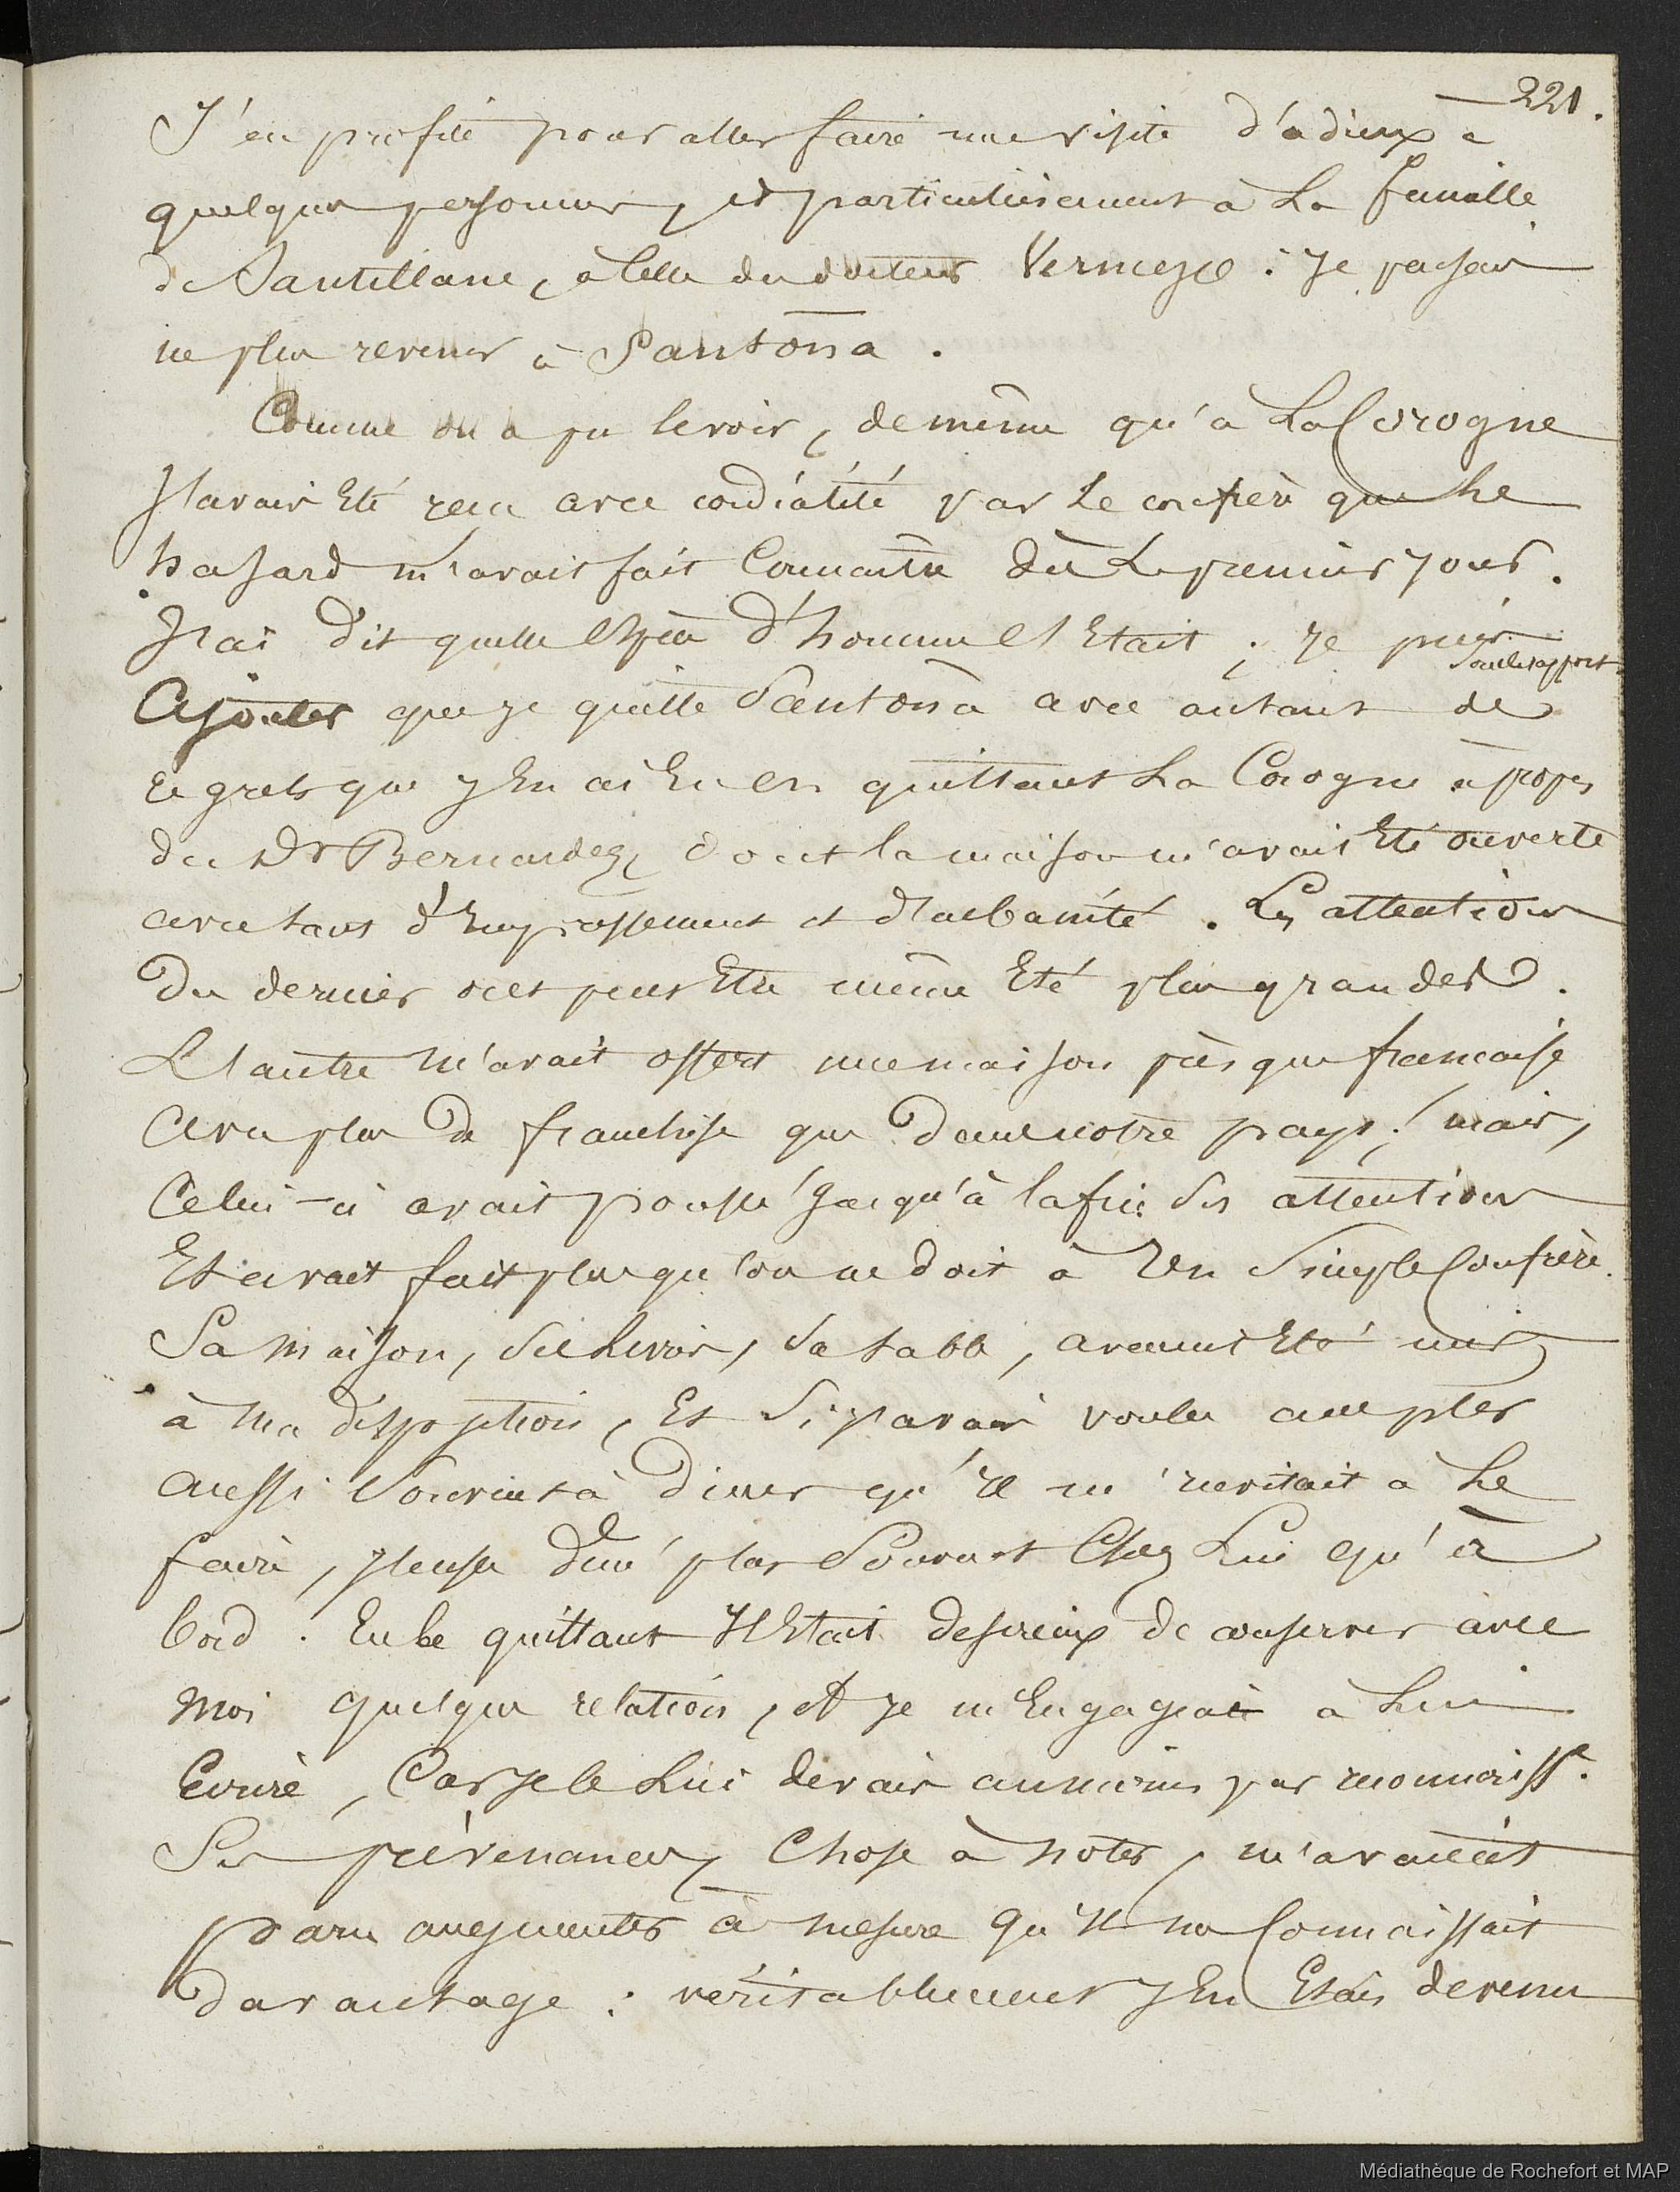 221.
J'en profité pour aller faire une visite d'adieux à
quelques personnes, et particulièrement à La famille
de Santillane, à celle du docteur Vermeze : Je pensais
ne plus revenir à Santona.
Comme on a pu le voir, de même qu'à La Corogne
J'avais Eté recu avec cordialité par Le confrère que Le
hasard m'avait fait Connaitre dès Le premier jour.
J'ai dit quelle Espèce d'homme c'Etait ; Je puis
sous le rapport
Ajouter que je quitte Santona avec autant de
regrets que j'En ai Eu En quittant La Corogne à propos
du Dr Bernardez dont la maison m'avait Eté ouverte
avec tant d'Empressement et d'urbanité. Les attentions
du dernier ont peut Etre même Eté plus grandes.
L'autre m'avait offert une maison presque francaise
Avec plus de franchise que dans notre pays ; mais,
Celui-ci avait poussé jusqu'à la fin ses attentions
Et avait fait plus qu'on ne doit à Un Simple Confrère.
Sa maison, Ses Livres, Sa table, avaient Eté mis
à ma disposition, Et Si j'avais voulu accepter
aussi Souvent à diner qu'Il m'invitait à Le
faire, j'eusse diné plus Souvent Chez Lui qu'à
bord. En le quittant Il Etait desireux de conserver avec
moi quelque relation, et je m'Engageai à Lui
Ecrire, Car je le Lui devais au moins par reconnaissce.
Ses prévenances, Chose à noter, m'avaient
paru augmenter à mesure qu'Il me Connaissait
davantage : véritablement j'En Etais devenu
Médiathèque de Rochefort et MAP